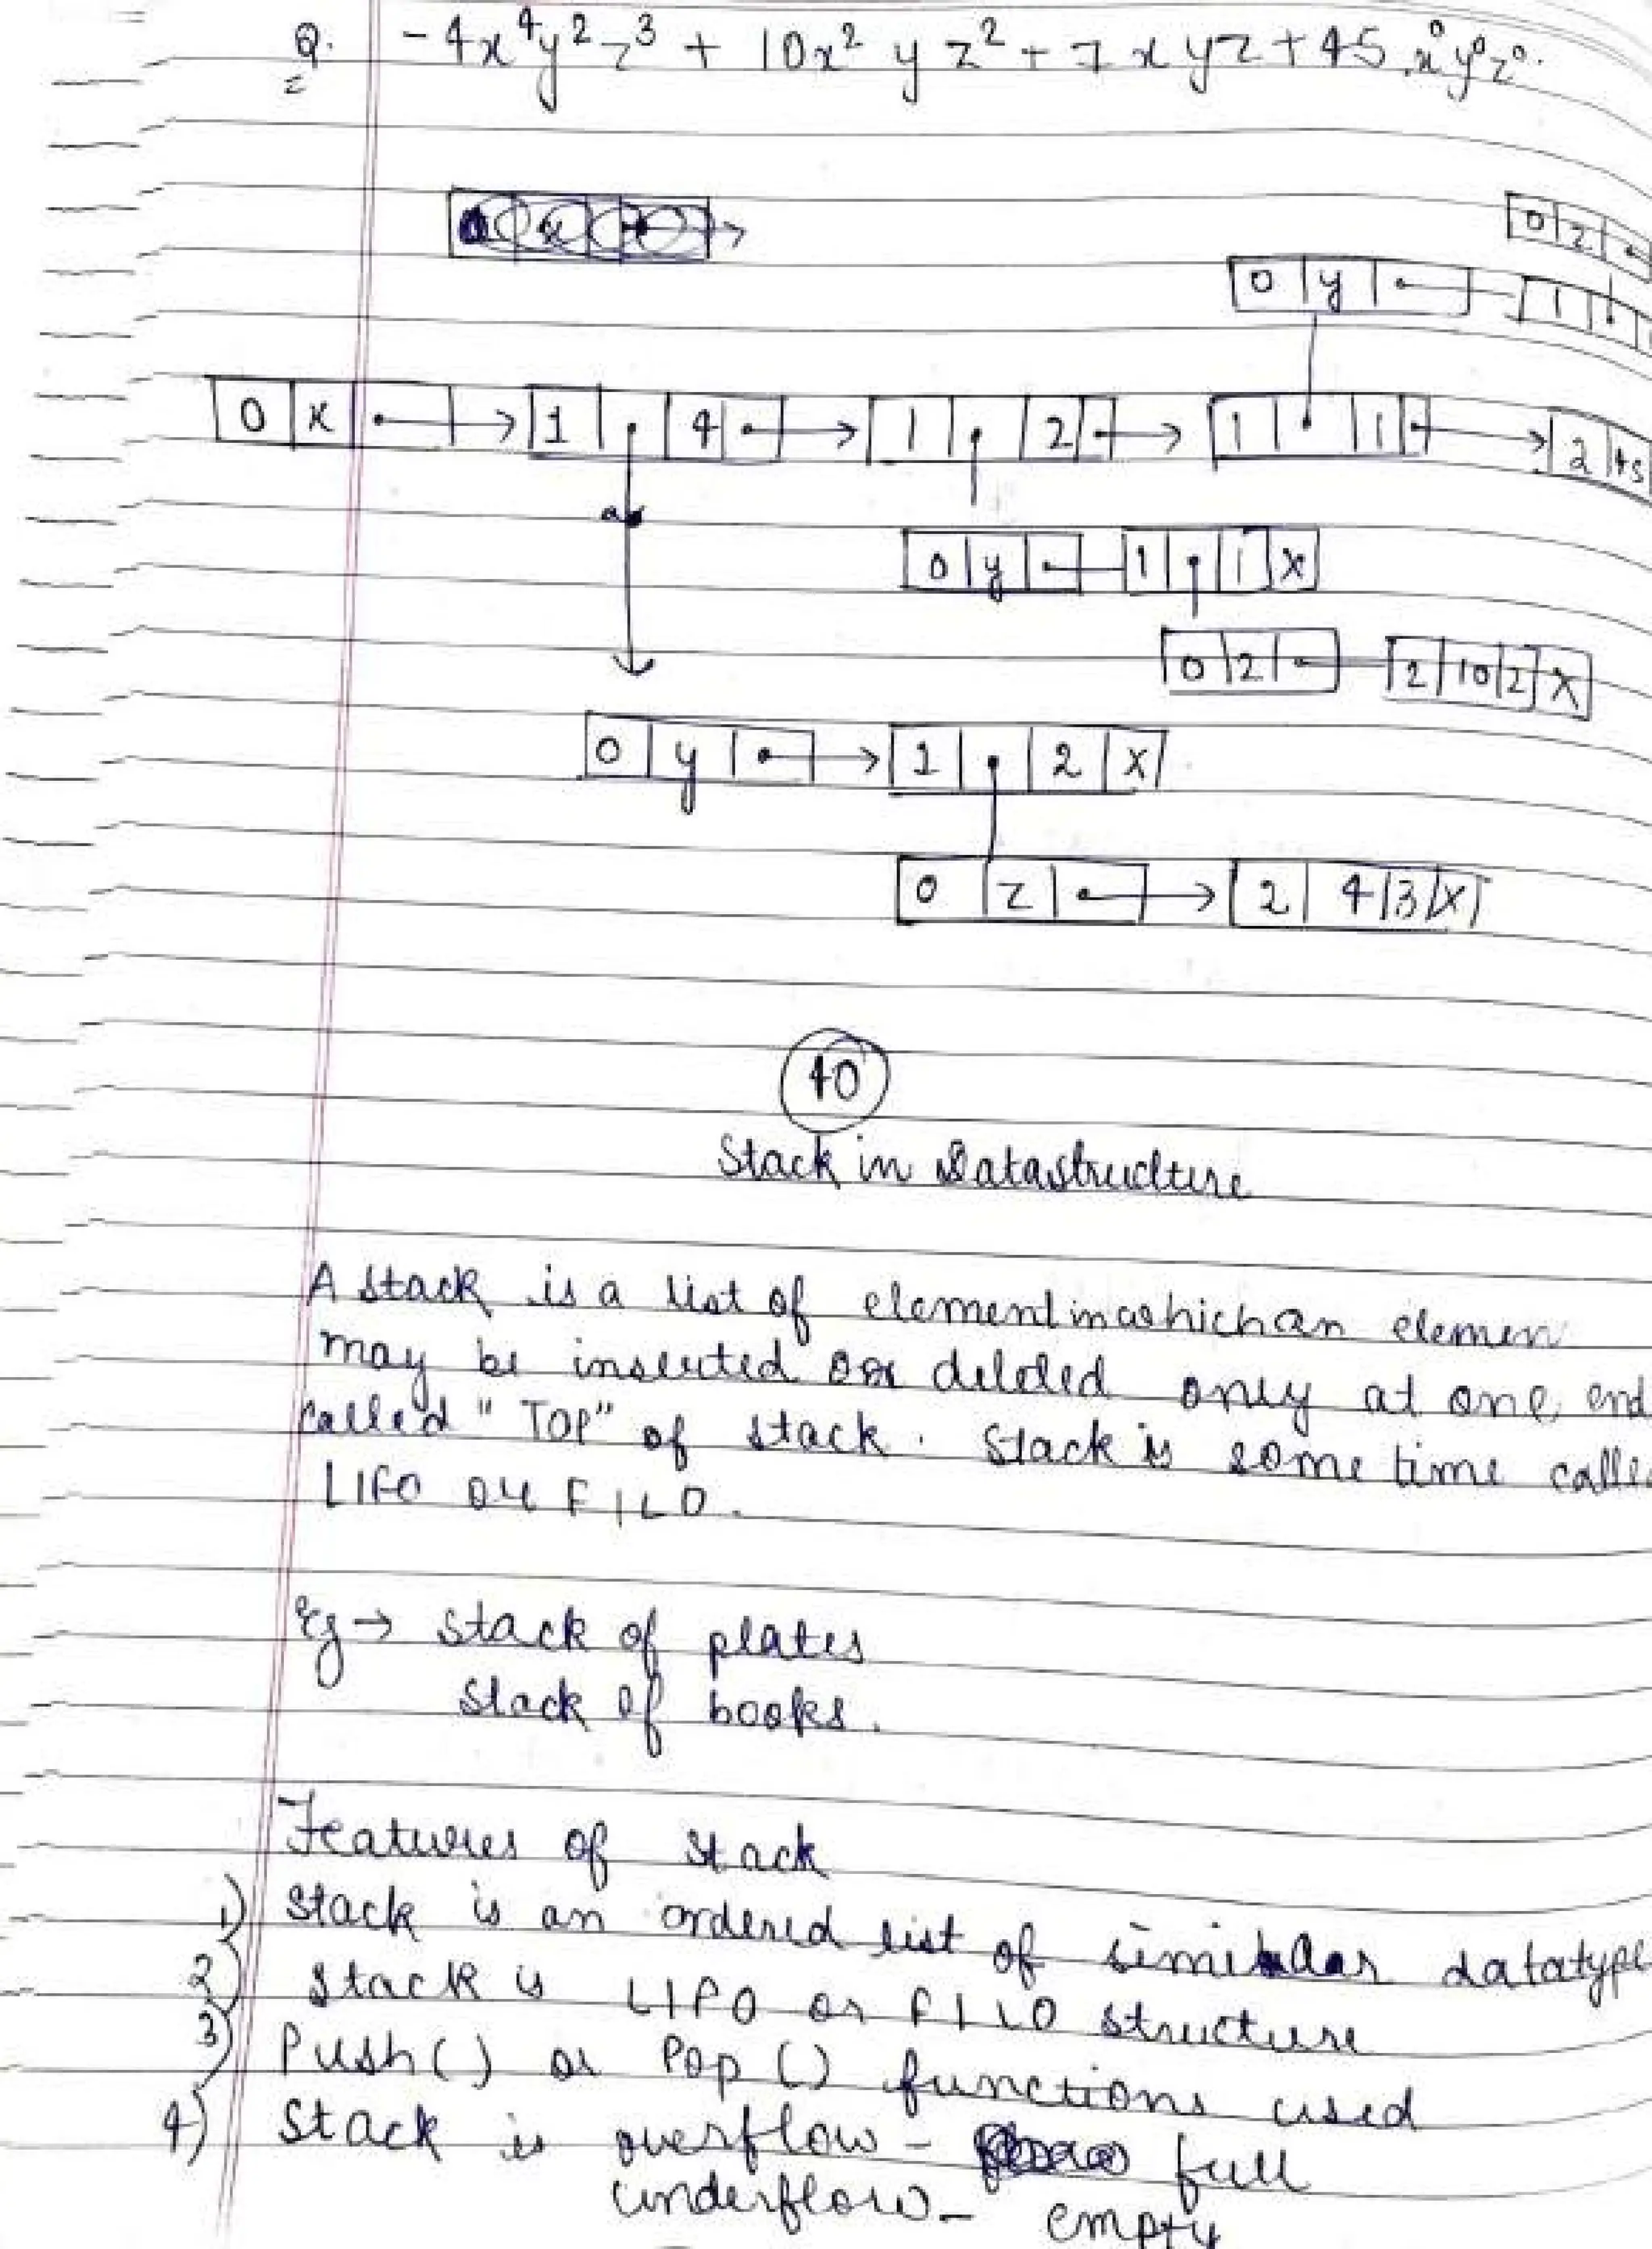 Q. -4x⁴y²z³ + 10x² y z² + 7 x y z + 45 x⁰y⁰z⁰.
0 z
0 y 1
0 x 1 4 1 2 1 1 2 45
0 y 1 1 x
0 2 2 10 2 x
0 y 1 2 x
0 z 2 4 3 x
40
Stack in Datastructure
A stack is a list of element in which an elemen
may be inserted or deleted only at one end
called "TOP" of stack. Stack is some time calle
LIFO or FILO.
Eg → stack of plates
stack of books.
Features of stack
1) stack is an ordered list of similar datatype
2) stack is LIFO or FILO structure
3) Push() or Pop() functions used
4) Stack is overflow - full
underflow - empty